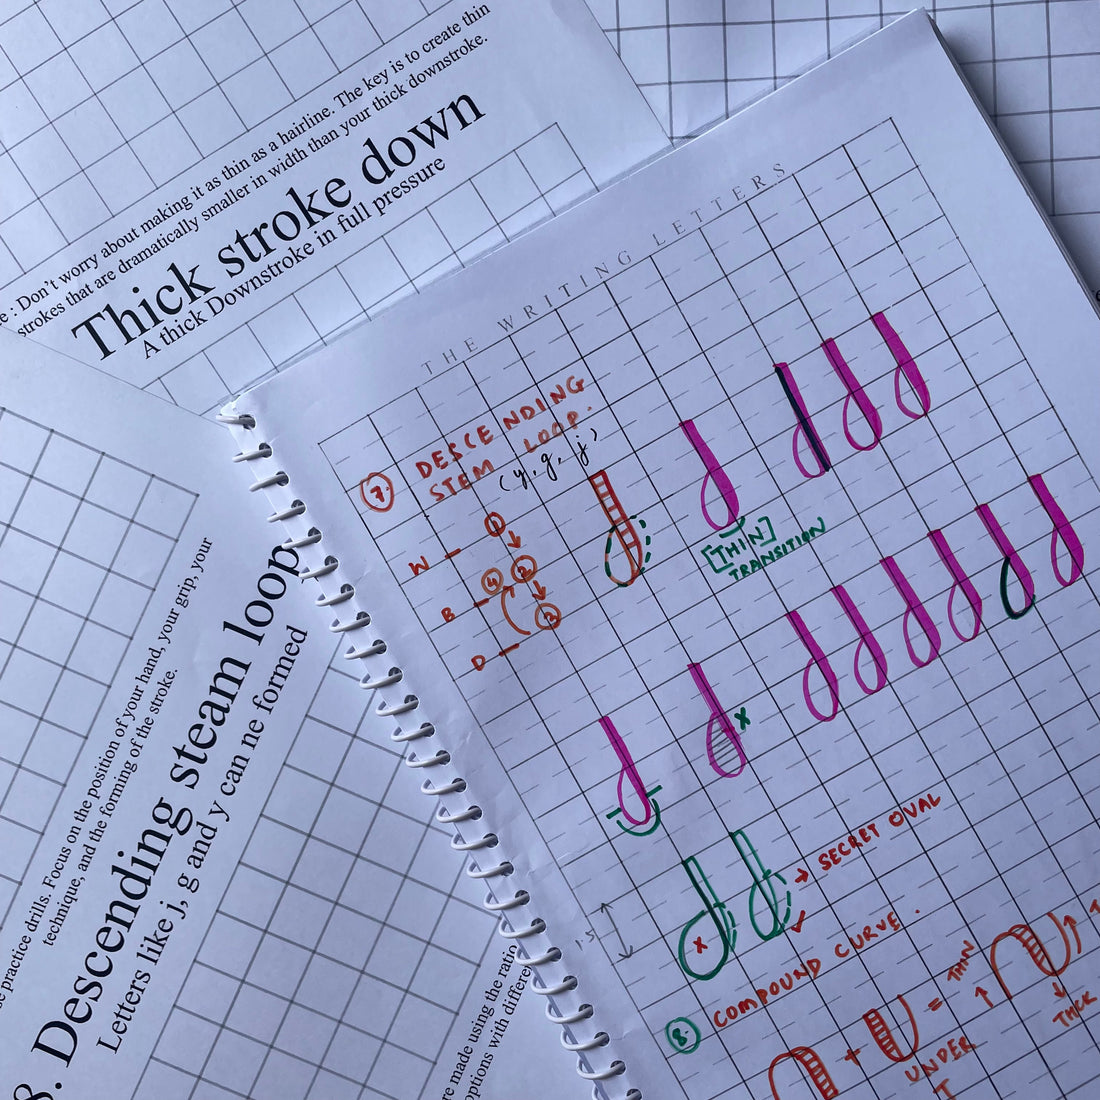 e : Don't worry about making it as thin as a hairline. The key is to create thin
strokes that are dramatically smaller in width than your thick downstroke.
Thick stroke down
A thick Downstroke in full pressure
THE WRITING LETTERS
7. DESCENDING
STEM LOOP.
(y, g, j)
W
1
B
4 2
3
D
[THIN]
TRANSITION
x
1.5
x
→ SECRET OVAL
8. COMPOUND CURVE.
+ = THIN
THICK
UNDER
T
e practice drills. Focus on the position of your hand, your grip, your
technique, and the forming of the stroke.
8. Descending steam loop
Letters like j, g and y can ne formed
re made using the ratio
options with differe